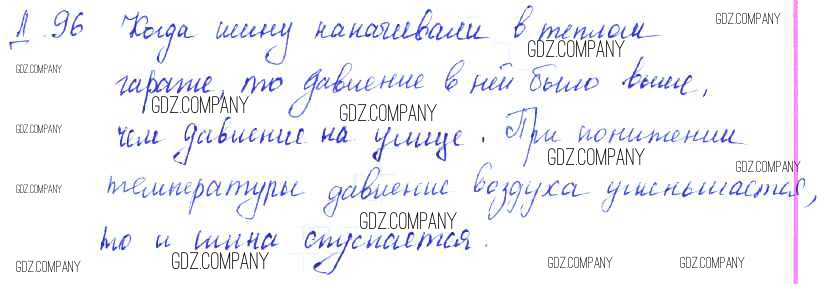 Д. 96 Когда шину накачивали в теплом
гараже, то давление в ней было выше,
чем давление на улице. При понижении
температуры давление воздуха уменьшается,
то и шина спускается.
GDZ.COMPANY
GDZ.COMPANY
GDZ.COMPANY
GDZ.COMPANY
GDZ.COMPANY
GDZ.COMPANY
GDZ.COMPANY
GDZ.COMPANY
GDZ.COMPANY
GDZ.COMPANY
GDZ.COMPANY
GDZ.COMPANY
GDZ.COMPANY
GDZ.COMPANY